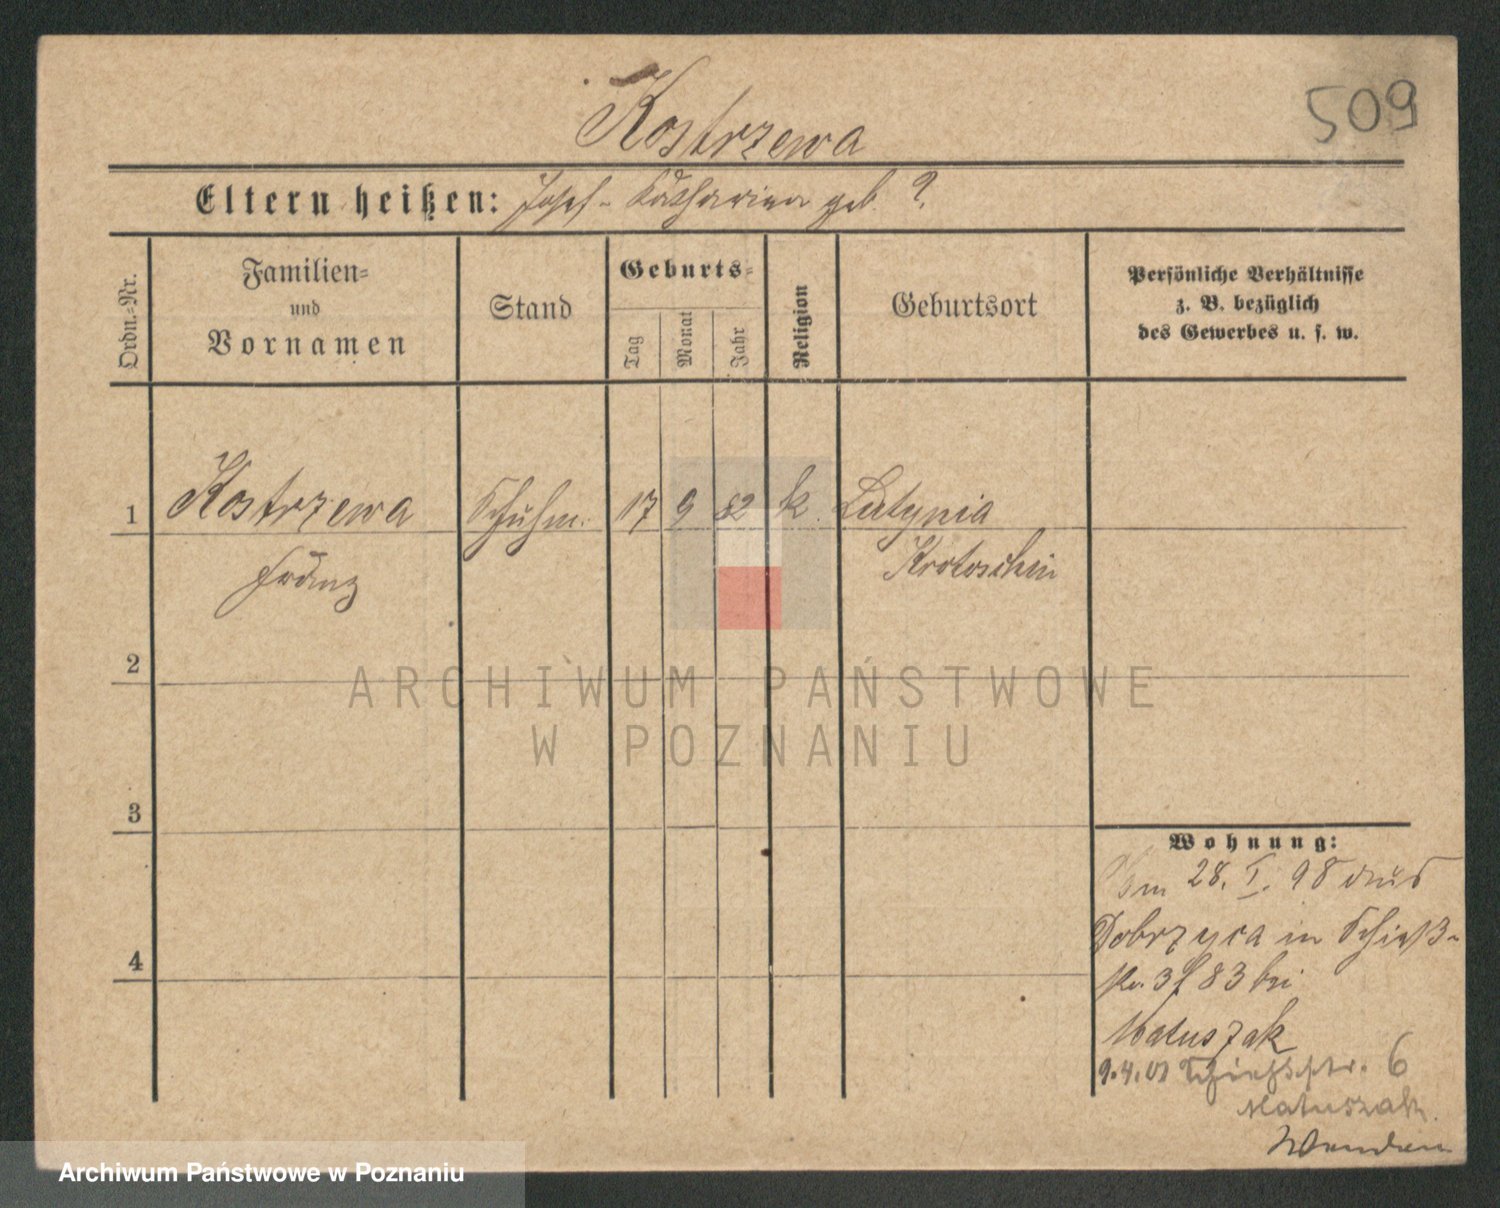 509
Kostrzewa
Eltern heißen: Josef - Katharina geb. ?.
Ordn.-Nr.
Familien-
und
Vornamen
Stand
Geburts-
Tag
Monat
Jahr
Religion
Geburtsort
Persönliche Verhältnisse
z. B. bezüglich
des Gewerbes u. s. w.
1 Kostrzewa Schuhm. 17 9 82 k. Lutynia
Franz Krotoschin
2
3
4
ARCHIWUM PAŃSTWOWE
W POZNANIU
Wohnung:
28. I. 98 aus
Dobrzyca in Schieß-
83 bei
Matuszak
9.4.01 Schießstr. 6
Matuszak.
Archiwum Państwowe w Poznaniu